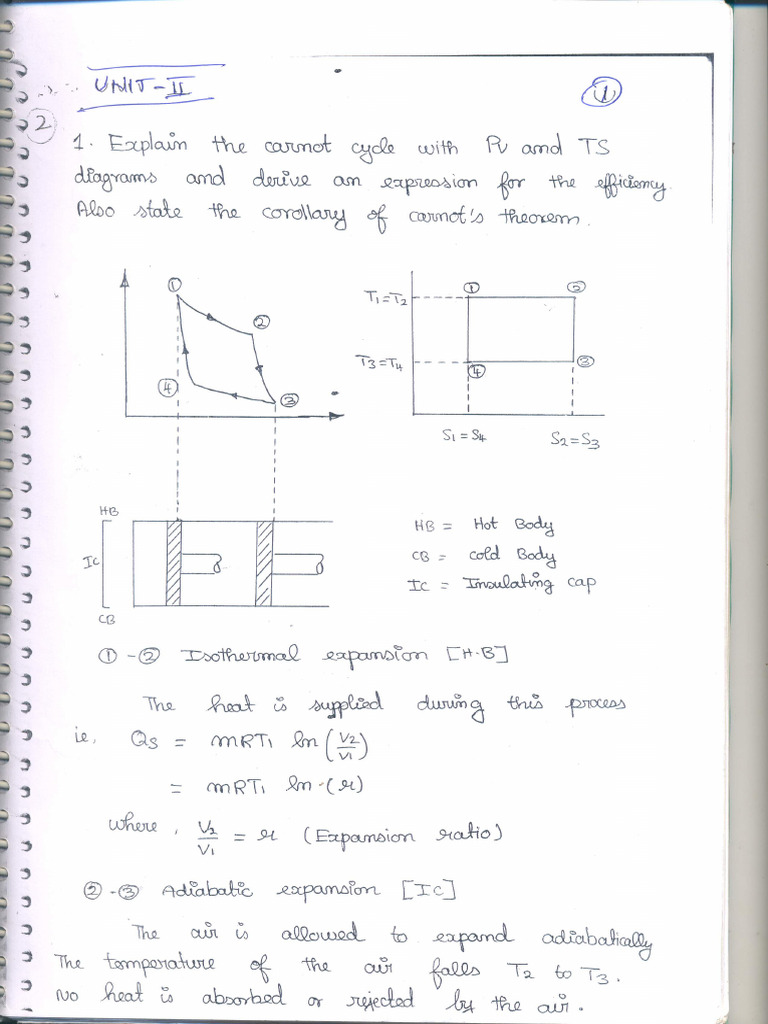 UNIT-II
①
②
1. Explain the carnot cycle with PV and TS
diagrams and derive an expression for the efficiency.
Also state the corollary of carnot's theorem.
①
②
④
③
T1=T2
①
②
T3=T4
④
③
S1=S4
S2=S3
HB
IC
CB
HB = Hot Body
CB = cold Body
IC = Insulating cap
①-② Isothermal expansion [H.B]
The heat is supplied during this process
ie, QS = mRT1 ln (V2/V1)
= mRT1 ln (r)
where, V2/V1 = r (Expansion ratio)
②-③ Adiabatic expansion [IC]
The air is allowed to expand adiabatically
The temperature of the air falls T2 to T3.
No heat is absorbed or rejected by the air.